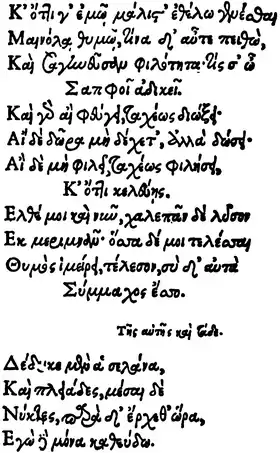 Κ' ὅτι γ' ἐμῷ μάλις' ἐθέλω γενέσθαι
Μαινόλα θυμῷ, τίνα δ' αὖτε πειθώ,
Καὶ σαγωεῦσσαν φιλότητα· τίς σ' ὦ
Σαπφοῖ ἀδικεῖ.
Καὶ γὸ αἰ φεύγει, ταχέως διώξει·
Αἰ δὲ δῶρα μὴ δέχετ', ἀλλὰ δώσει·
Αἰ δὲ μὴ φιλεῖ, ταχέως φιλήσει,
Κ' ὅτι κελεύης.
Ελθέ μοι καὶ νῦν, χαλεπᾶν δὲ λῦσον
Εκ μεριμνῶν· ὅσσα δέ μοι τελέσσαι
Θυμὸς ἱμέρει, τέλεσον, σὺ δ' αὐτὰ
Σύμμαχος ἔσσο.
Τῆς αὐτῆς καὶ τάδε.
Δέδυκε μὲν ἁ σελάνα,
Καὶ πλειάδες, μέσαι δὲ
Νύκτες, παρὰ δ' ἔρχεθ' ὥρα,
Εγὼ δὲ μόνα καθεύδω.